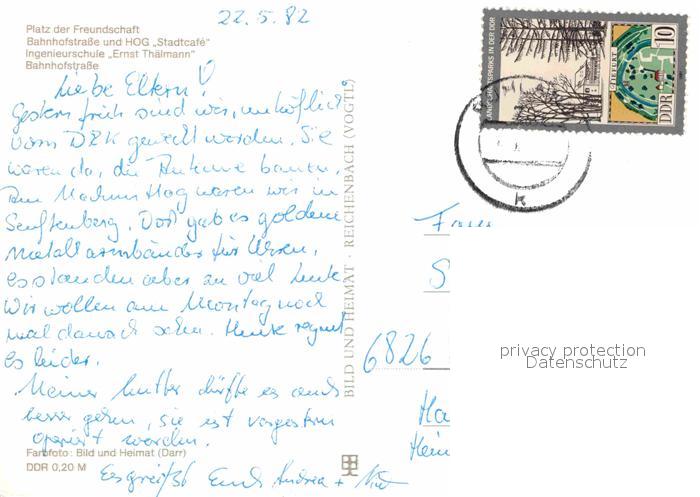 22.5.82
Platz der Freundschaft
Bahnhofstraße und HOG „Stadtcafé“
Ingenieurschule „Ernst Thälmann“
Bahnhofstraße
Liebe Eltern!
Gestern früh sind wir, unhöflich
vom DRK geweckt worden. Sie
waren da, die Antenne bauen.
Am Nachmittag waren wir in
Senftenberg. Dort gab es goldene
Metallarmbänder für Uhren,
es standen aber zu viel Leute
Wir wollen am Montag noch
mal danach sehn. Heute regnet
es leider.
Meiner Mutter dürfte es auch
besser gehen, sie ist vorgestern
operiert worden.
Es grüßt Euch Andrea +
Farbfoto: Bild und Heimat (Darr)
DDR 0,20 M
BILD UND HEIMAT · REICHENBACH (VOGTL)
PARKS IN DER DDR
TIEFURT
DDR 10
k
S
6826
Ha
Hein
privacy protection
Datenschutz